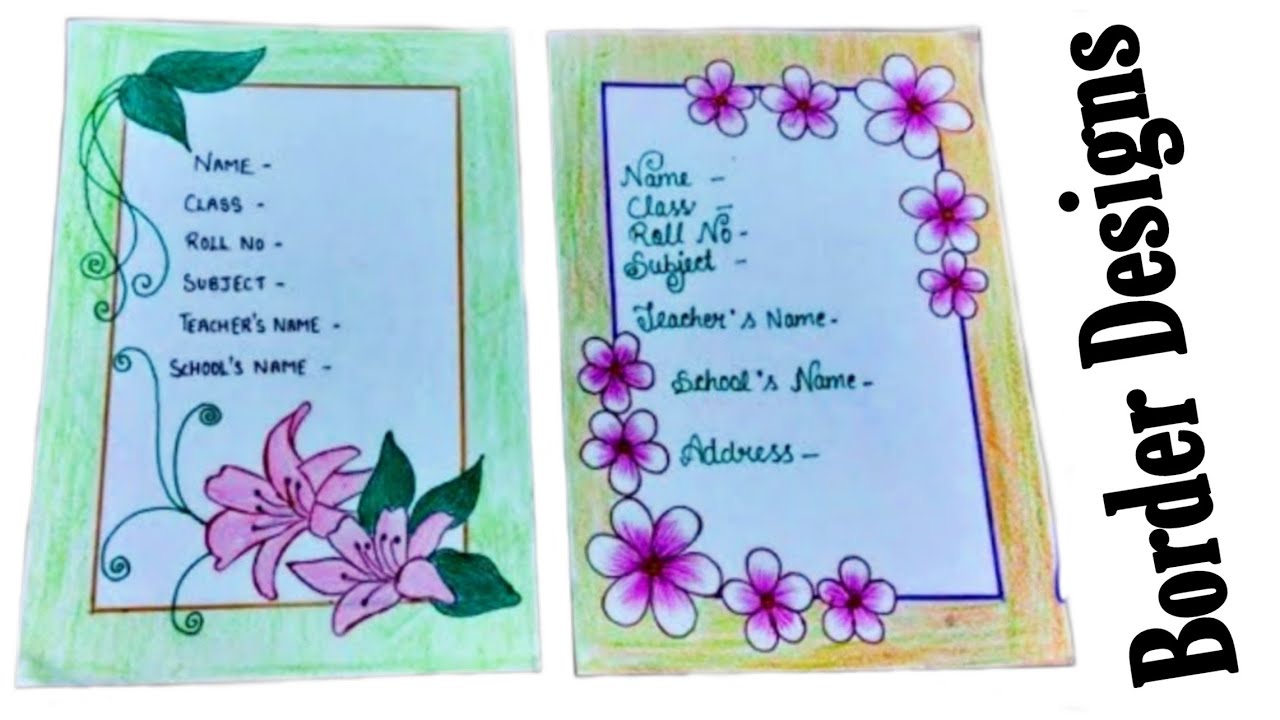 NAME -
CLASS -
ROLL NO -
SUBJECT -
TEACHER'S NAME -
SCHOOL'S NAME -
Name -
Class -
Roll No -
Subject -
Teacher's Name -
School's Name -
Address -
Border Designs